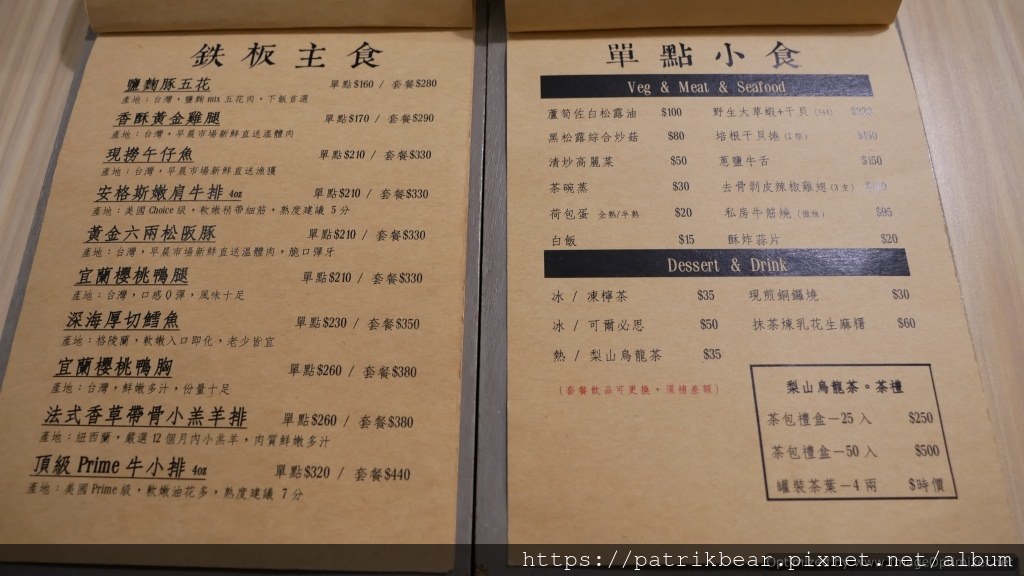 鉄板主食
鹽麴豚五花 單點$160 / 套餐$280
產地：台灣，鹽麴mix五花肉，下飯首選
香酥黃金雞腿 單點$170 / 套餐$290
產地：台灣，早晨市場新鮮直送溫體肉
現撈午仔魚 單點$210 / 套餐$330
產地：台灣，早晨市場新鮮直送漁獲
安格斯嫩肩牛排 4oz 單點$210 / 套餐$330
產地：美國Choice級，軟嫩稍帶細筋，熟度建議 5分
黃金六兩松阪豚 單點$210 / 套餐$330
產地：台灣，早晨市場新鮮直送溫體肉，脆口彈牙
宜蘭櫻桃鴨腿 單點$210 / 套餐$330
產地：台灣，口感Q彈，風味十足
深海厚切鱈魚 單點$230 / 套餐$350
產地：格陵蘭，軟嫩入口即化，老少皆宜
宜蘭櫻桃鴨胸 單點$260 / 套餐$380
產地：台灣，鮮嫩多汁，份量十足
法式香草帶骨小羔羊排 單點$260 / 套餐$380
產地：紐西蘭，嚴選12個月內小羔羊，肉質鮮嫩多汁
頂級Prime牛小排 4oz 單點$320 / 套餐$440
產地：美國Prime級，軟嫩油花多，熟度建議 7分
單點小食
Veg & Meat & Seafood
蘆筍佐白松露油 $100 野生大草蝦+干貝
黑松露綜合炒菇 $80 培根干貝捲
清炒高麗菜 $50 蔥鹽牛舌 $150
茶碗蒸 $30 去骨剝皮辣椒雞翅
荷包蛋 全熟/半熟 $20 私房牛筋燒 $95
白飯 $15 酥炸蒜片 $20
Dessert & Drink
冰 / 凍檸茶 $35 現煎銅鑼燒 $30
冰 / 可爾必思 $50 抹茶煉乳花生麻糬 $60
熱 / 梨山烏龍茶 $35
(套餐飲品可更換，須補差額)
梨山烏龍茶。茶禮
茶包禮盒－25入 $250
茶包禮盒－50入 $500
罐裝茶葉－4兩 $時價
https://patrikbear.pixnet.net/album